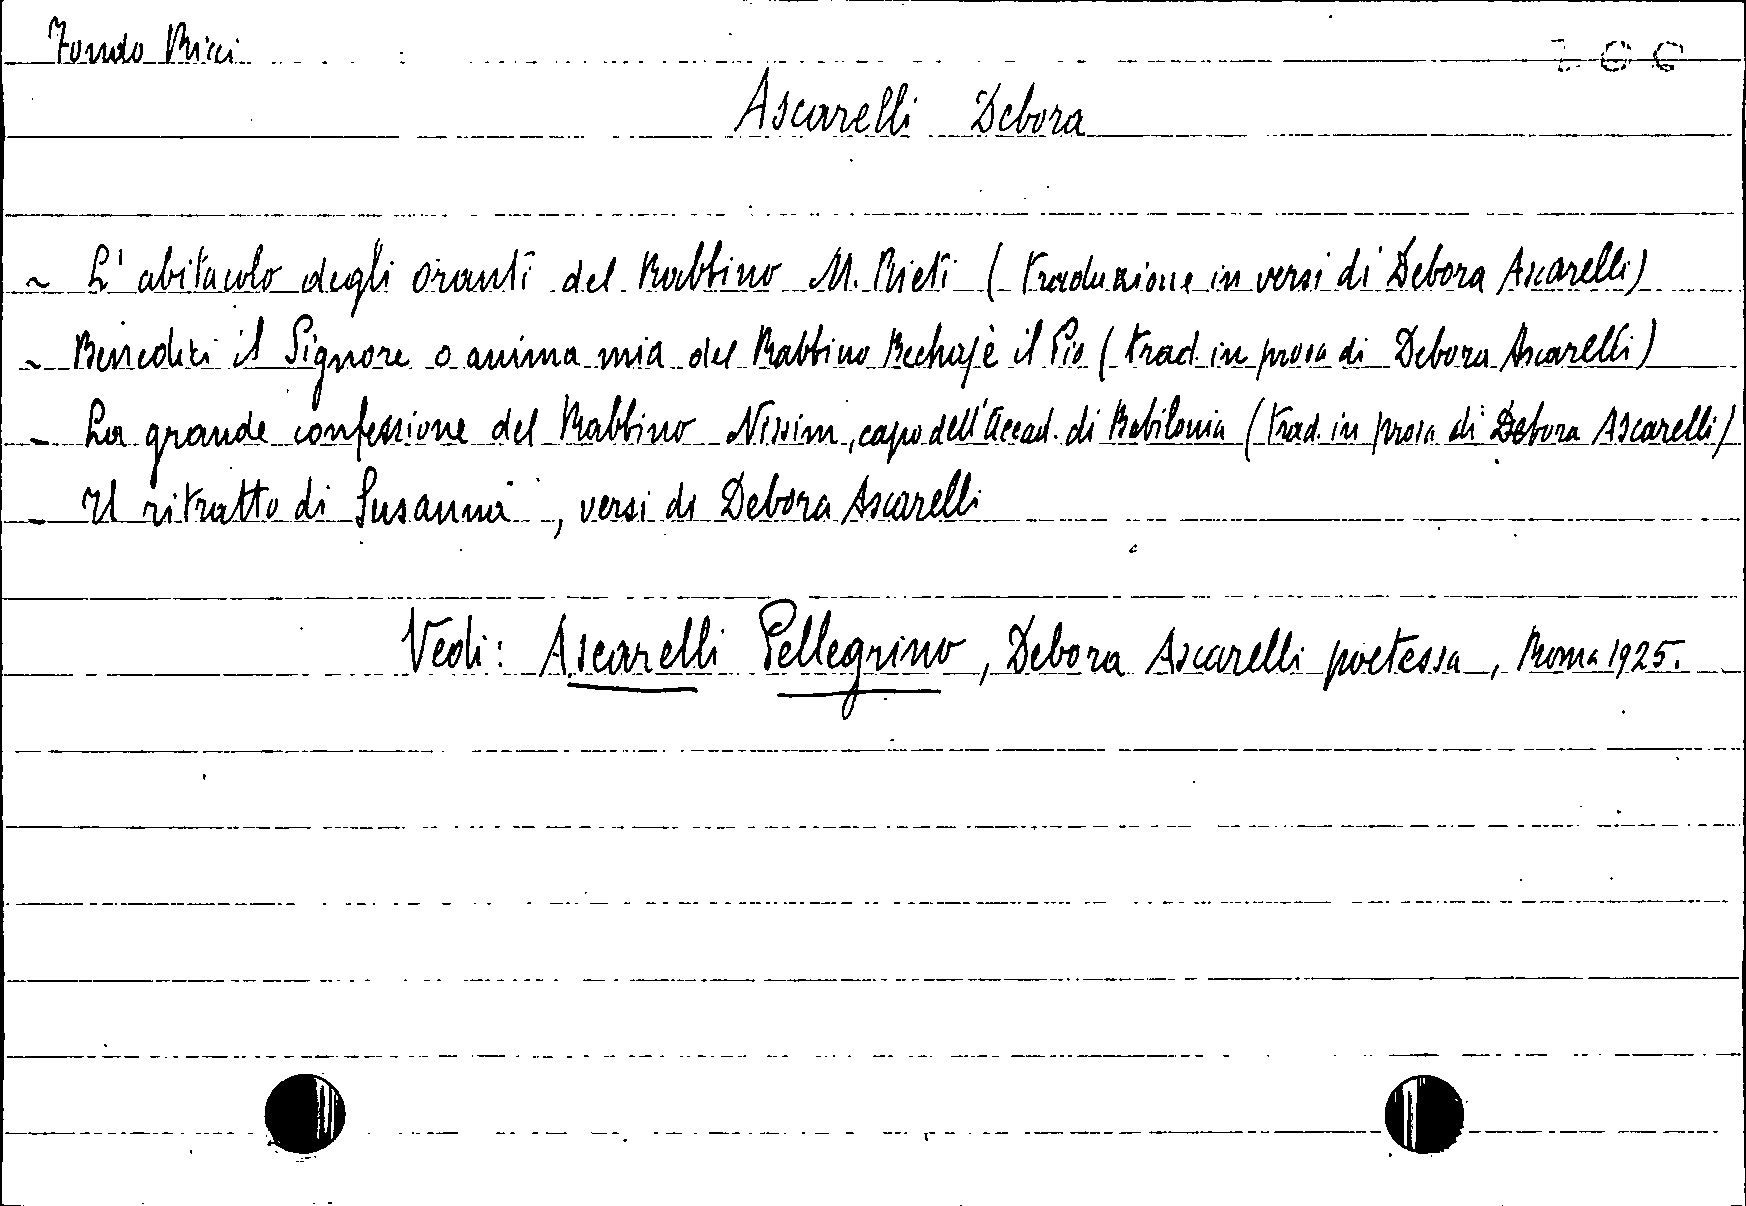 Fondo Ricci
Ascarelli Debora
~ L' abitacolo degli oranti del Rabbino M. Rieti (traduzione in versi di Debora Ascarelli)
~ Benedici il Signore o anima mia del Rabbino Bechajè il Pio (trad. in prosa di Debora Ascarelli)
- La grande confessione del Rabbino Nissim, capo dell'Accad. di Babilonia (trad. in prosa di Debora Ascarelli)
- Il ritratto di Susanna, versi di Debora Ascarelli
Vedi: Ascarelli Pellegrino, Debora Ascarelli poetessa, Roma 1925.